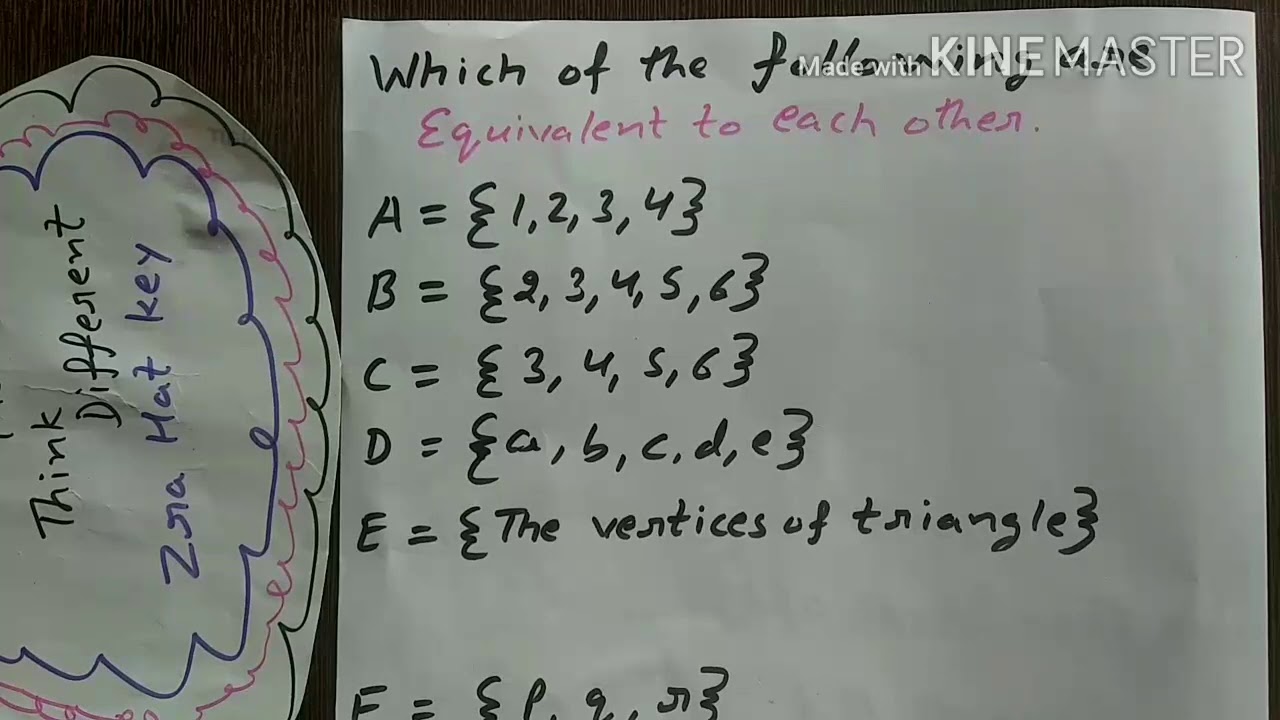 Think
Different
Zra Hat key
Made with KINEMASTER
Which of the following are
Equivalent to each other.
A = {1, 2, 3, 4}
B = {2, 3, 4, 5, 6}
C = {3, 4, 5, 6}
D = {a, b, c, d, e}
E = {The vertices of triangle}
F = {p, q, r}